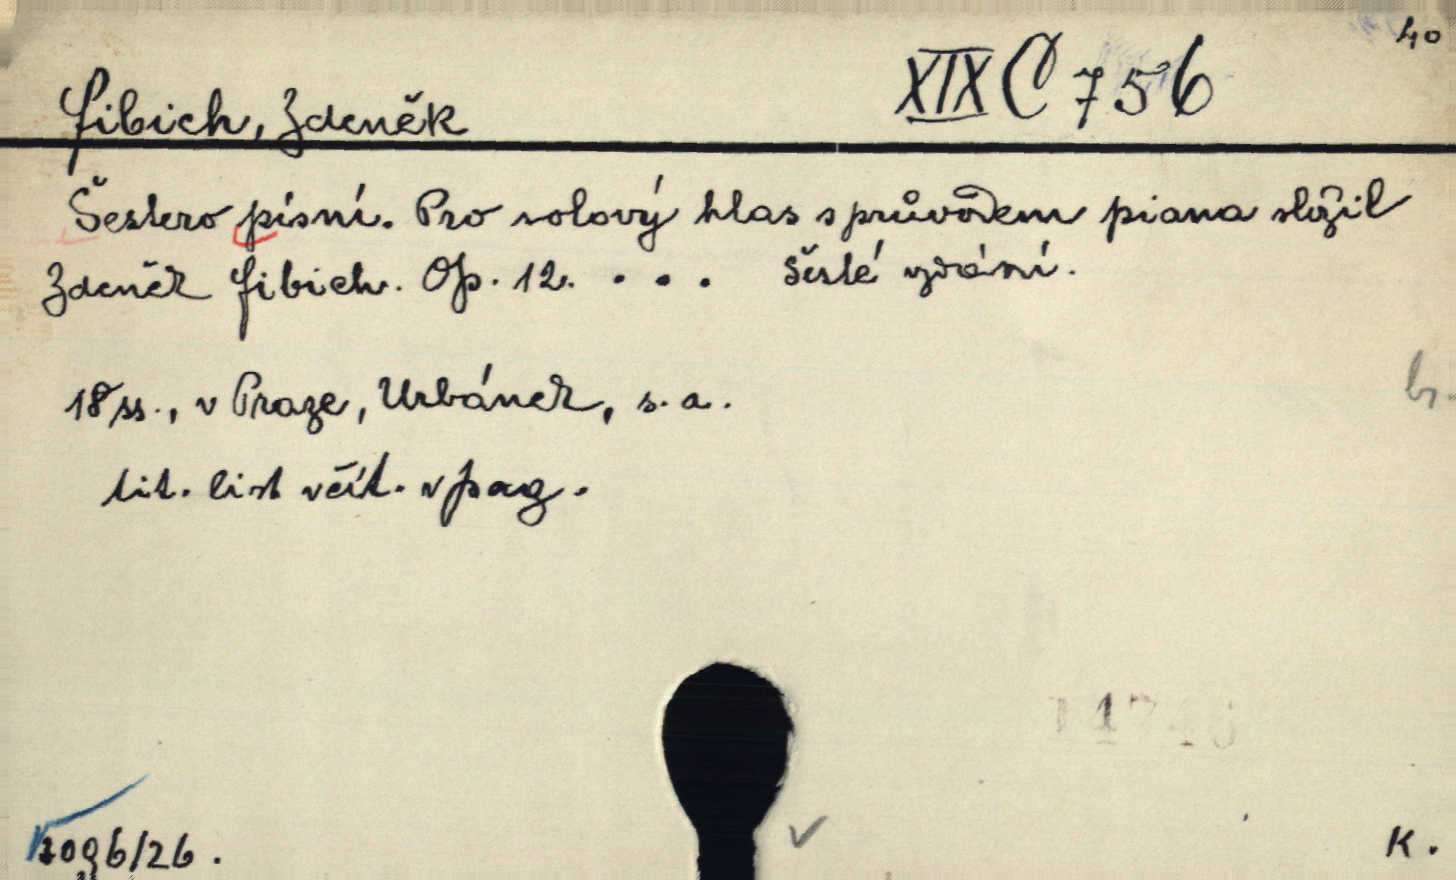 40
XIX C 756
Fibich, Zdeněk
Šestero písní. Pro solový hlas s průvodem piana složil
Zdeněk Fibich. Op. 12. . . . Šesté vydání.
18 ss., v Praze, Urbánek, s. a.
b.
tit. list včít. v pag.
2096/26.
K.